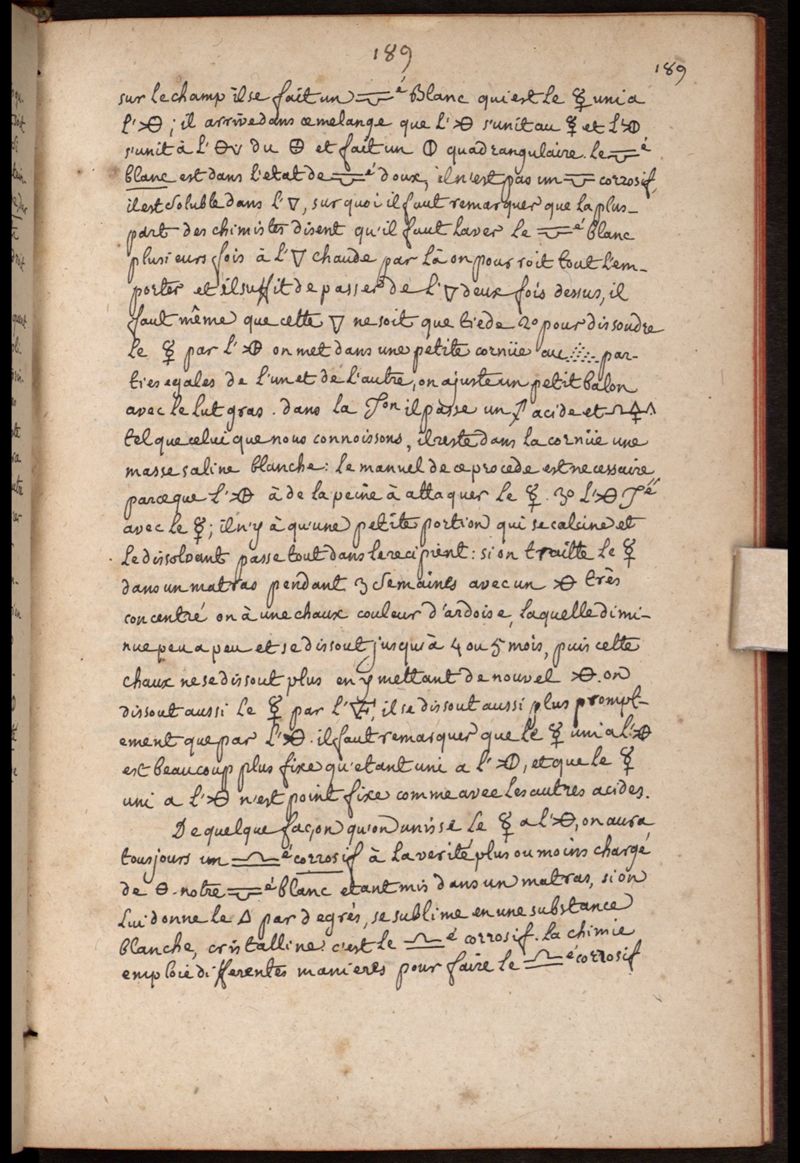 189
189
sur le champ il se fait un é Blanc qui est le ☿ uni a
l' ; il arrive dans ce melange que l' s'unit au ☿ et l'
s'unit à l' du ⊕ et fait un quadrangulaire. le é
blanc est dans l'etat de é doux, il n'est pas un corrosif
il est soluble dans l'▽, sur quoi il faut remarquer que la plus-
part des chimistes disent qu'il faut laver le é blanc
plusieurs fois à l'▽ chaude par là on pourroit tout l'em-
porter et il suffit de passer de l'▽ deux fois dessus, il
faut même que cette ▽ ne soit que tiede 2° pour dissoudre
le ☿ par l' on met dans une petite cornüe au par-
ties egales de l'un et de l'autre, on ajuste un petit balon
avec le lut gras. dans la on il passe un acide et
tel que celui que nous connoissons, il reste dans la cornüe une
masse saline blanche: le manuel de ce procede est necessaire
parceque l' à de la peine à attaquer le ☿. 3° l' é
avec le ☿; il n'y à qu'une petite portion qui se calcine et
le dissolvant passe tout dans le recipient: si on traitte le ☿
dans un matras pendant 3 semaines avec un très
concentré on à une chaux couleur d'ardoise, laquelle dimi-
nue peu a peu et se dissout jusqu'à 4 ou 5 mois, puis cette
chaux ne se dissout plus en y mettant de nouvel . on
dissout aussi le ☿ par l' , il se dissout aussi plus prompt-
ement que par l' . il faut remarquer que le ☿ uni a l'
est beaucoup plus fixe qu'etant uni a l' , et que le ☿
uni a l' n'est point fixe comme avec les autres acides.
De quelque façon qu'on unisse le ☿ a l' , on aura
tousjours un é corrosif à la verité plus ou moins chargé
de . notre é blanc etant mis dans un matras, si on
lui donne le △ par degrés, se sublime en une substance
blanche, cristalline c'est le é corrosif. la chimie
emploie differentes manieres pour faire le é corrosif